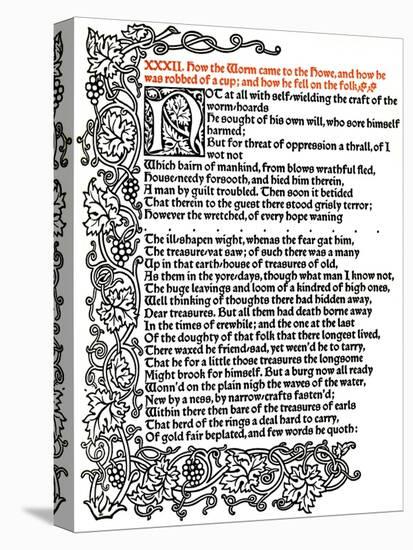 XXXII. How the Worm came to the Howe, and how he
was robbed of a cup; and how he fell on the folk.
NOT at all with self-wielding the craft of the
worm-hoards
He sought of his own will, who sore himself
harmed;
But for threat of oppression a thrall, of I
wot not
Which bairn of mankind, from blows wrathful fled,
House-needy forsooth, and hied him therein,
A man by guilt troubled. Then soon it betided
That therein to the guest there stood grisly terror;
However the wretched, of every hope waning
. . . . . . . . . . . .
The ill-shapen wight, whenas the fear gat him,
The treasure-vat saw; of such there was a many
Up in that earth-house of treasures of old,
As them in the yore-days, though what man I know not,
The huge leavings and loom of a kindred of high ones,
Well thinking of thoughts there had hidden away,
Dear treasures. But all them had death borne away
In the times of erewhile; and the one at the last
Of the doughty of that folk that there longest lived,
There waxed he friend-sad, yet ween'd he to tarry,
That he for a little those treasures the longsome
Might brook for himself. But a burg now all ready
Wonn'd on the plain nigh the waves of the water,
New by a ness, by narrow-crafts fasten'd;
Within there then bare of the treasures of earls
That herd of the rings a deal hard to carry,
Of gold fair beplated, and few words he quoth: